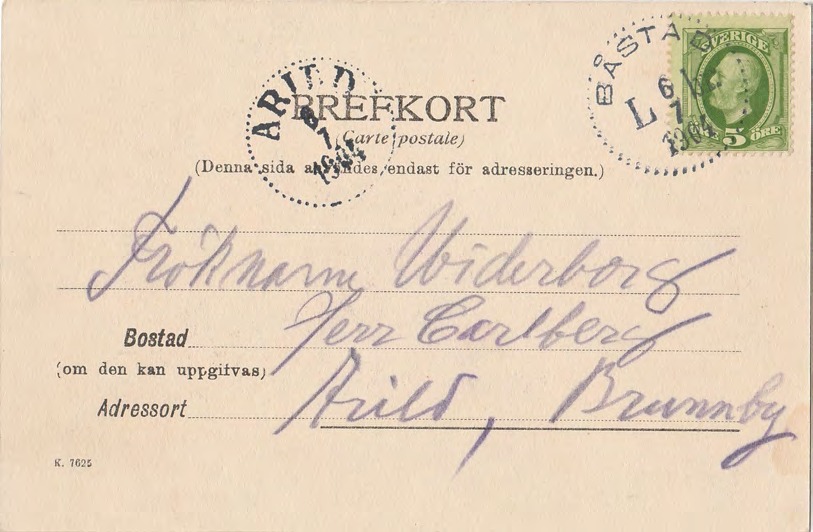 BÅSTAD
6
7
1904
L
SVERIGE
5 ÖRE
ARILD
7
1904
BREFKORT
(Carte postale)
(Denna sida användes endast för adresseringen.)
Fröknarna Widerborg
Bostad Herr Carlberg
(om den kan uppgifvas)
Adressort Arild, Brunnby
K. 7625